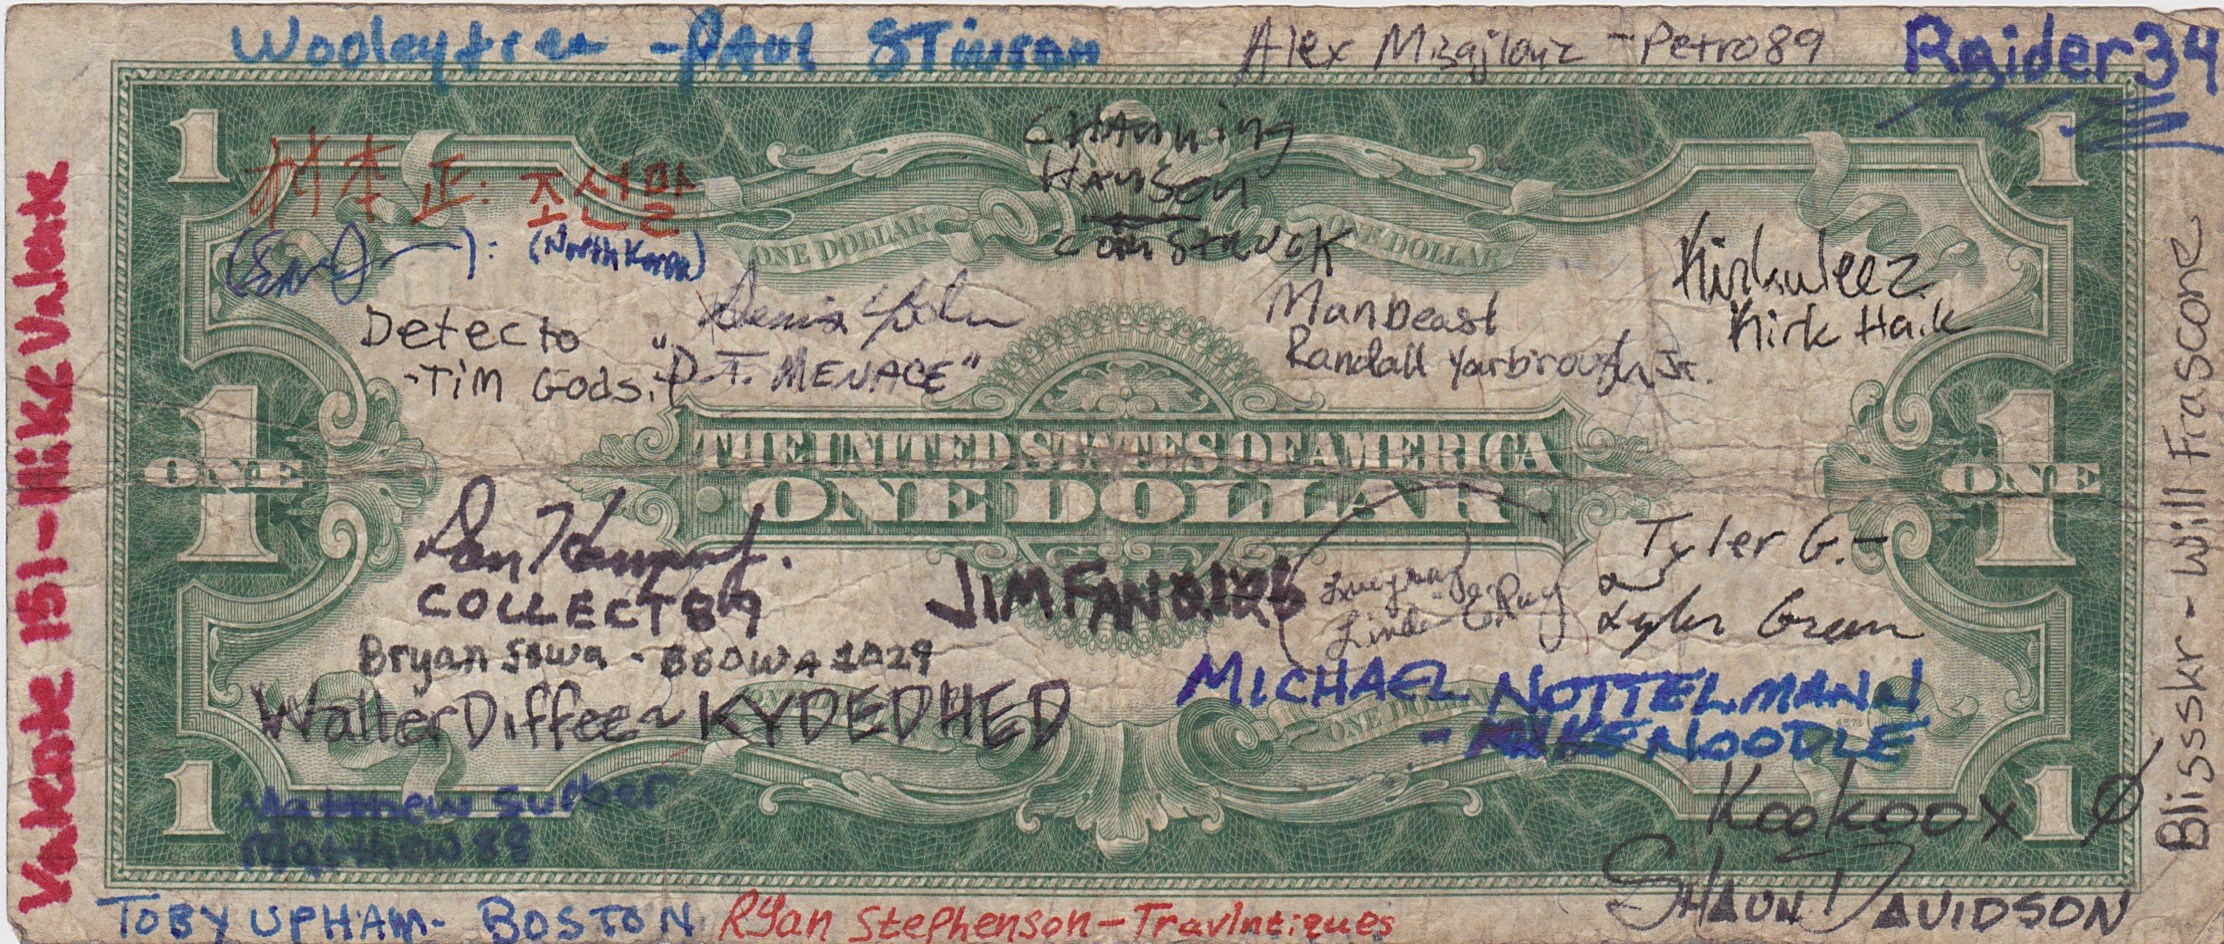 Wooleytree - PAUL STimson
Alex Mihajlovic - Petro89
Raider34
1
1
CHANNing
HANSen
COINSTRUCK
正: 조선말
(North Korea)
ONE DOLLAR
ONE DOLLAR
Kirkuleez
Kirk Haik
Detecto
-Tim Gods.
"D.T. MENACE"
ManBeast
Randall Yarbrough, Jr.
THE UNITED STATES OF AMERICA
ONE DOLLAR
1
ONE
1
ONE
COLLECT89
JIMFAN
Tyler G. -
Tyler Green
Linda
Bryan Sowa - BSOWA1029
Walter Diffee ~ KYDEDHED
MICHAEL NOTTELMANN
- MIKENOODLE
ONE DOLLAR
ONE DOLLAR
Matthew Surber
Matthew88
1
1
KooKoox
SHAUN DAVIDSON
TOBY UPHAM - BOSTON
RYan Stephenson - Travlntiques
Valente 151 - Mike Valente
Blissskr - Will Frascone